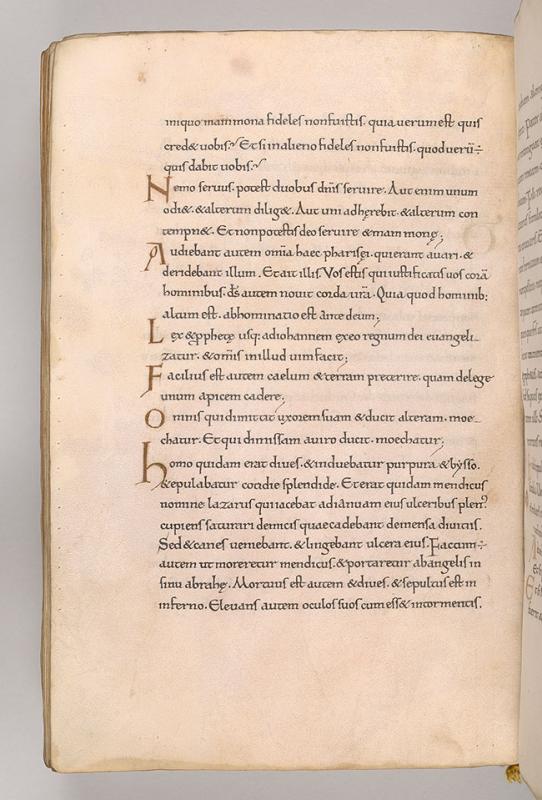 iniquo mammona fideles nonfuistis. quia uerum est quis
cred& uobis? Et si inalieno fideles nonfuistis. quod uerū÷
quis dabit uobis?
Nemo seruus potest duobus dñis seruire. Aut enim unum
odi&. &alterum dilig&. Aut uni adherebit. &alterum con
tempn&. Et nonpotestis deo seruire &mammonę;
Audiebant autem omĩa haec pharisęi. quierant auari. &
deridebant illum. Etait illis. Vos estis quiiustificatis uos corā
hominibus. d̄s autem nouit corda ur̄a. Quia quod hominib:
altum est. abhominatio est ante deum;
Lex &pphetę usq; adiohannem exeo regnum dei euangeli
zatur. &omīs inillud uim facit;
Facilius est autem caelum &terram preterire. quam delege
unum apicem cadere;
Omnis quidimittit uxorem suam &ducit alteram. moe
chatur. Etqui dimissam auiro ducit. moechatur;
homo quidam erat diues. &induebatur purpura &bysso.
&epulabatur cotidie splendide. Eterat quidam mendicus
nomine lazarus quiiacebat adianuam eius ulceribus plen'
cupiens saturari demicis quaecadebant demensa diuitis.
Sed &canes ueniebant. &lingebant ulcera eius. Factum÷
autem ut moreretur mendicus. &portaretur abangelis in
sinu abrahę. Mortuus est autem &diues. &sepultus est in
inferno. Eleuans autem oculos suos cum ess& intormentis.